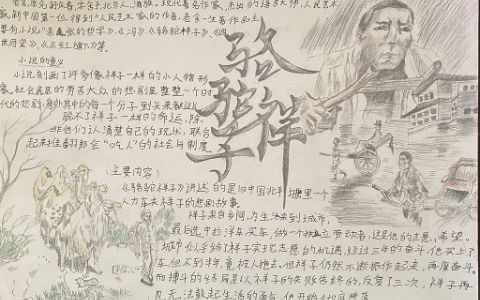 老舍,原名舒庆春,字舍予,北京人,满族,现代著名作家,杰出的语言大师,人民艺术
家,新中国第一位得到"人民艺术家"的作者。老舍一生著作品主
要有小说"老张的哲学》、《》、《骆驼祥子》、《四
世同堂》、《正红旗下》等.
小说的意义
小说刻画了许多像祥子一样的小人物形
象,社会底层的劳苦大众的悲剧是整整一个时
代的悲剧,身处其中的每一个分子到头来都
脱不了祥子一样的命运,除
非他们认清楚自己的现状,联合
起来推翻那会"吃人"的社会与制度.
骆驼祥子
(主要内容)
《骆驼祥子》讲述的是旧中国北平城里一个
人力车夫祥子的悲剧故事.
祥子来自乡间,为生活来到城市,
最后选中拉洋车,买车,做个独立劳动者,这是他的志愿,希望。
城市似乎给了祥子实现志愿的机遇,经过三年的奋斗,他买上了
车,但不到半年,竟被人抢去,但祥子仍然不断振作起来,再度奋斗,
而搏斗的结局是以祥子的失败告终的,反复了三次,祥子再
也无法鼓起生活的勇气,他开始